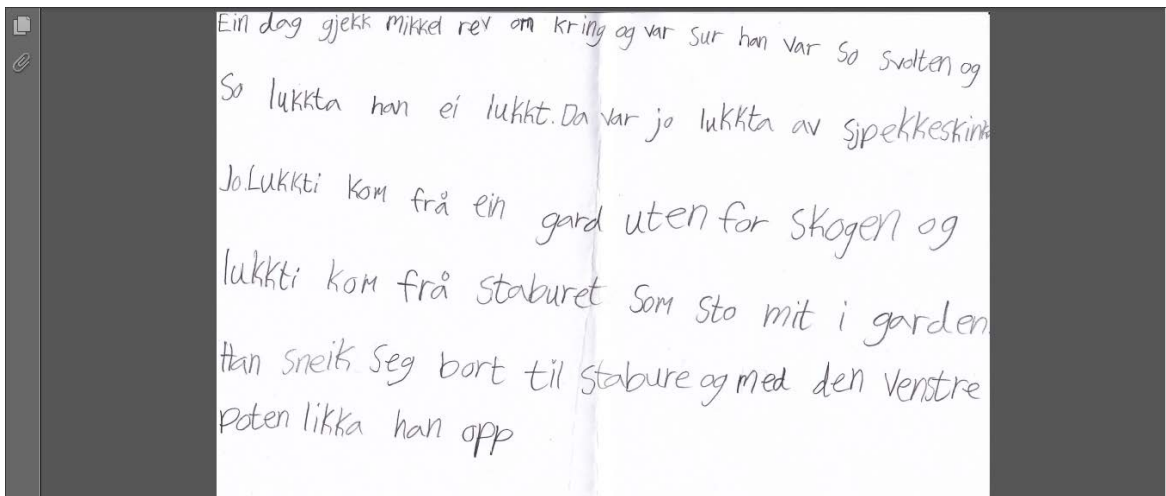 Ein dag gjekk mikkel rev om kring og var sur han var so svolten og
So lukkta han ei lukkt. Da var jo lukkta av sjpekkeskinke
Jo. Lukkti kom frå ein gard uten for skogen og
lukkti kom frå staburet som sto mit i garden.
Han sneik seg bort til stabure og med den venstre
poten likka han opp